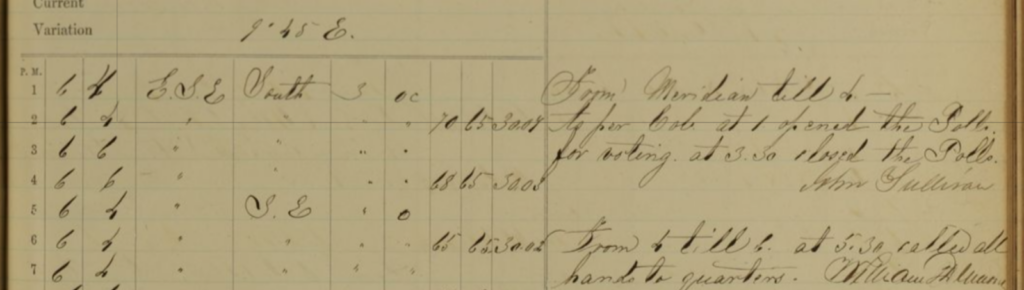 Current
Variation 9° 45 E.
P. M.
1 6 4 E.S.E South 3 oc From Meridian till 4 —
2 6 4 " " " " 70 65 30.08 As per Col. at 1 opened the Polls
3 6 6 " " " " for voting. at 3.30 closed the Polls.
4 6 6 " " " 68 65 30.03 John Sullivan
5 6 4 " S. E " o
6 6 4 " " " " 65 65 30.02 From 4 till 6. at 5.30 called all
7 6 4 " " " " hands to quarters. William